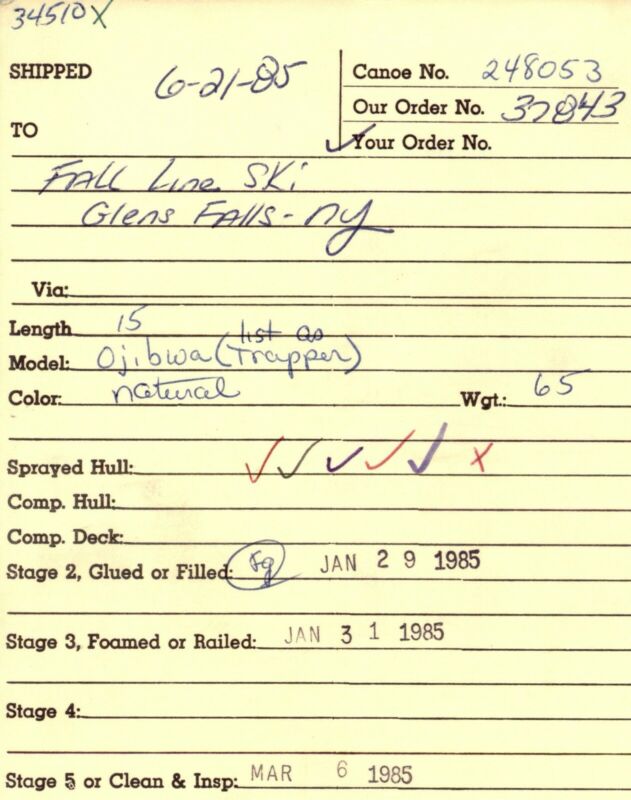 34510X
SHIPPED 6-21-85 Canoe No. 248053
Our Order No. 37843
TO ✓ Your Order No.
Fall Line Ski
Glens Falls - NY
Via:
Length 15
list as
Model: Ojibwa (Trapper)
Color: natural Wgt.: 65
Sprayed Hull: ✓ ✓ ✓ ✓ ✓ x
Comp. Hull:
Comp. Deck:
Stage 2, Glued or Filled: Fg JAN 29 1985
Stage 3, Foamed or Railed: JAN 31 1985
Stage 4:
Stage 5 or Clean & Insp: MAR 6 1985